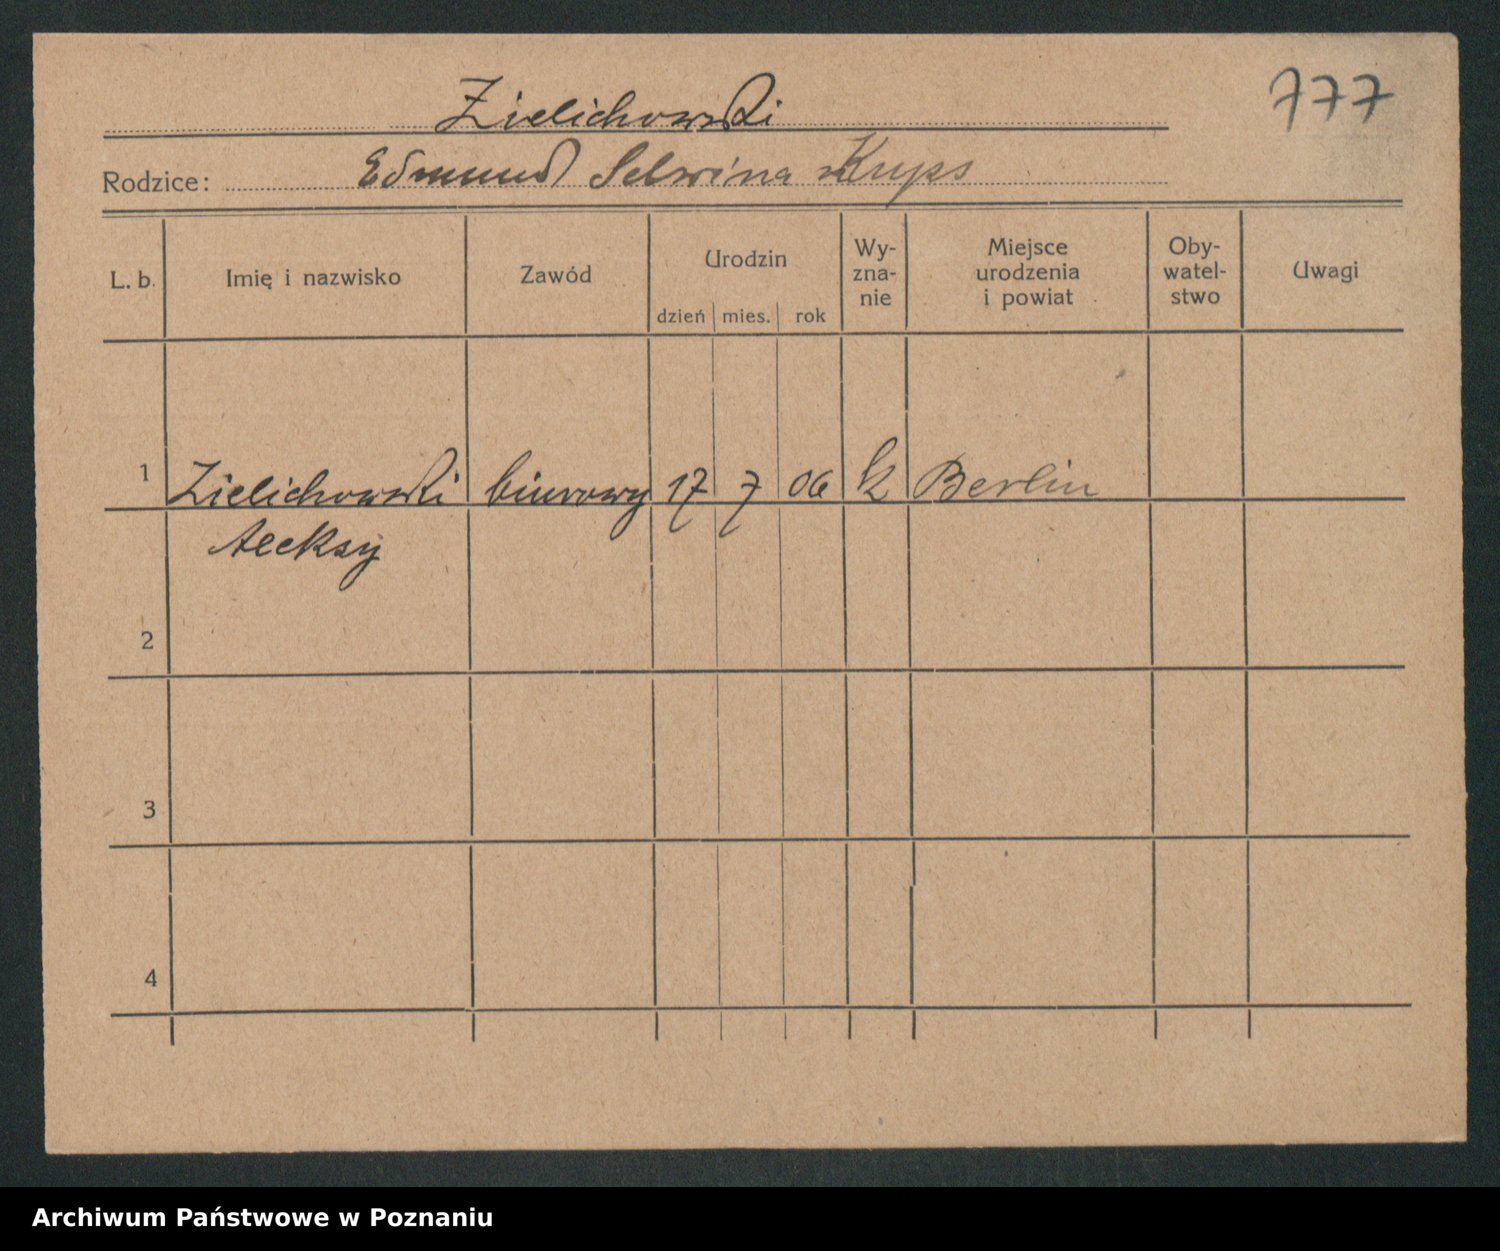 777
Zielichowski
Rodzice: Edmund Selwina Kryps
L. b. Imię i nazwisko Zawód Urodzin dzień mies. rok Wy-zna-nie Miejsce urodzenia i powiat Oby-watel-stwo Uwagi
1 Zielichowski biurowy 17 7 06 k Berlin
Aleksy
2
3
4
Archiwum Państwowe w Poznaniu